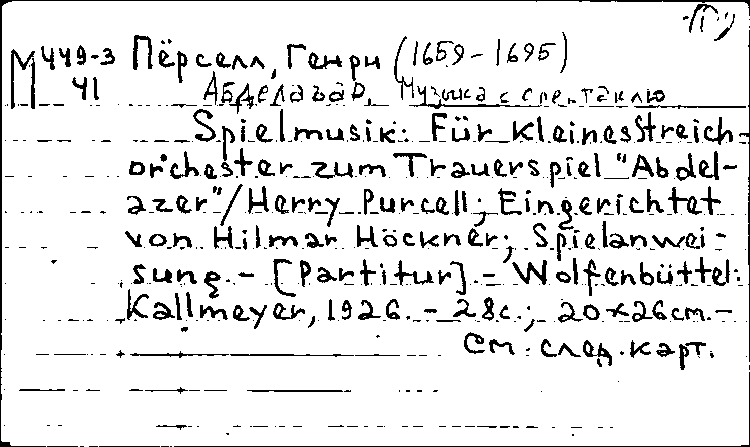 М 449-3 Пёрселл, Генри (1659-1695)
41 Абделазар. Музыка к спектаклю
Spielmusik: Für kleines Streich-
orchester zum Trauerspiel "Abdel-
azer"/Henry Purcell; Eingerichtet
von Hilmar Höckner; Spielanwei-
sung. - [Partitur]. - Wolfenbüttel:
Kallmeyer, 1926. - 28 с.; 20×26 см. -
См. след. карт.